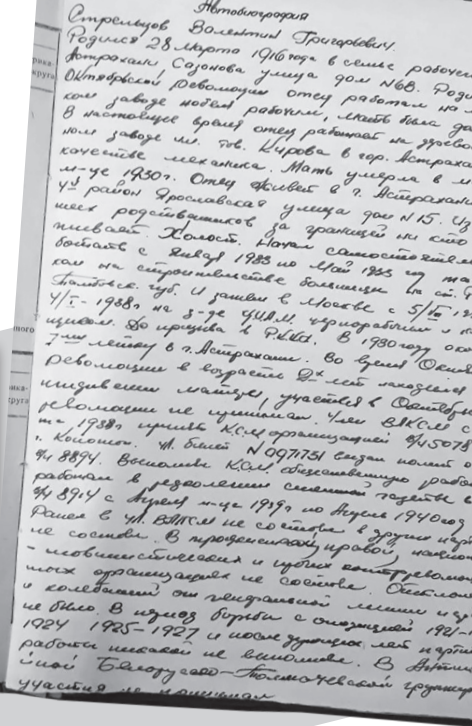 Автобиография
Стрельцов Валентин Григорьевич.
Родился 28 марта 1916 года в семье рабоче
Астрахани Сазонова улица дом №60. Роди
Октябрьской Революции отец работал на
ком заводе рабочим, мать была до
В настоящее время отец работает на
ном заводе им. тов. Кирова в гор. Астраха
качестве механика. Мать умерла в м
м-це 1930г. Отец живет в г. Астрахани
4й район Ярославская улица дом №15. Из
ших родственников за границей ни кто
живает. Холост. Начал самостоятель
ботать с Января 1933 по Май 1933 год
ком на строительстве больницы на ст.
губ. И затем в Москве с 5/
4/I-1938г на з-де чернорабочим и
щиком. До призыва в РККА. В 1930 году око
7ми летку в г. Астрахани. Во время Октя
Революции в возрасте 2х лет находился
иждивении матери, участия в Октябрь
революции не принимал. Член ВЛКСМ с
та 1938г принят КСМ организацией в/ч 5078
г. Чл. билет №0971751 выдан полит о
в/ч 8894. Выполнял КСМ общественную рабо
работал в редколлегии газеты в
в/ч 8914 с Апреля м-це 1939г по Апрель 1940 год
Ранее в чл. ВЛКСМ не состоял в других пар
не состоял. В троцкистской, правой, национ
-шовинистических и других контрреволю
ных организациях не состоял. Отклон
и колебаний от генеральной линии
не было. В период борьбы с оппозицией 1921-
1924 1925-1927 и последующих лет парти
работы никакой не выполнял. В Анти
йной Белорусско-Толмачевской группир
участия не принимал